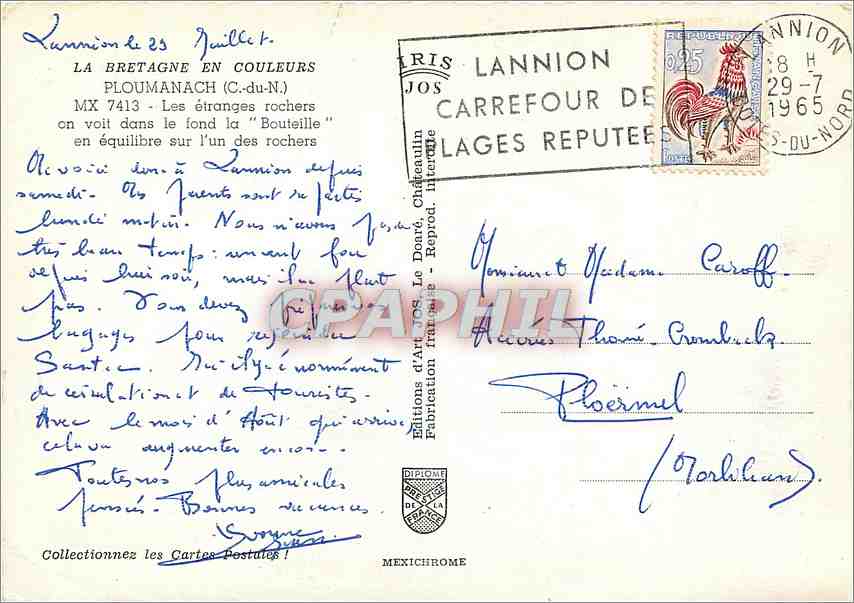 Lannion le 29 Juillet.
LA BRETAGNE EN COULEURS
PLOUMANACH (C.-du-N.)
MX 7413 - Les étranges rochers
on voit dans le fond la "Bouteille"
en équilibre sur l'un des rochers
voici donc à Lannion depuis
samedi. Mes parents sont repartis
lundi matin. Nous n'avons pas eu
très beau temps : un vent fou
depuis hier soir, mais il ne pleut
pas. Vous devez préparer vos
bagages pour rejoindre
Santec. Ici il y a énormément
de circulation et de touristes.
Avec le mois d'Août qui arrive,
cela va augmenter encore.
Toutes nos plus amicales
pensées. Bonnes vacances.
Yvonne
Collectionnez les Cartes Postales !
IRIS
JOS
Editions d'Art JOS, Le Doaré, Châteaulin
Fabrication française - Reprod. interdite
DIPLOME
PRESTIGE
DE LA
FRANCE
MEXICHROME
LANNION
CARREFOUR DE
LAGES REPUTEES
REPUBLIQUE FRANCAISE
0,25
POSTES
LANNION
18 H
29-7
1965
COTES-DU-NORD
Monsieur et Madame Caroff.
Ploërmel
(Morbihan).
CPAPHIL